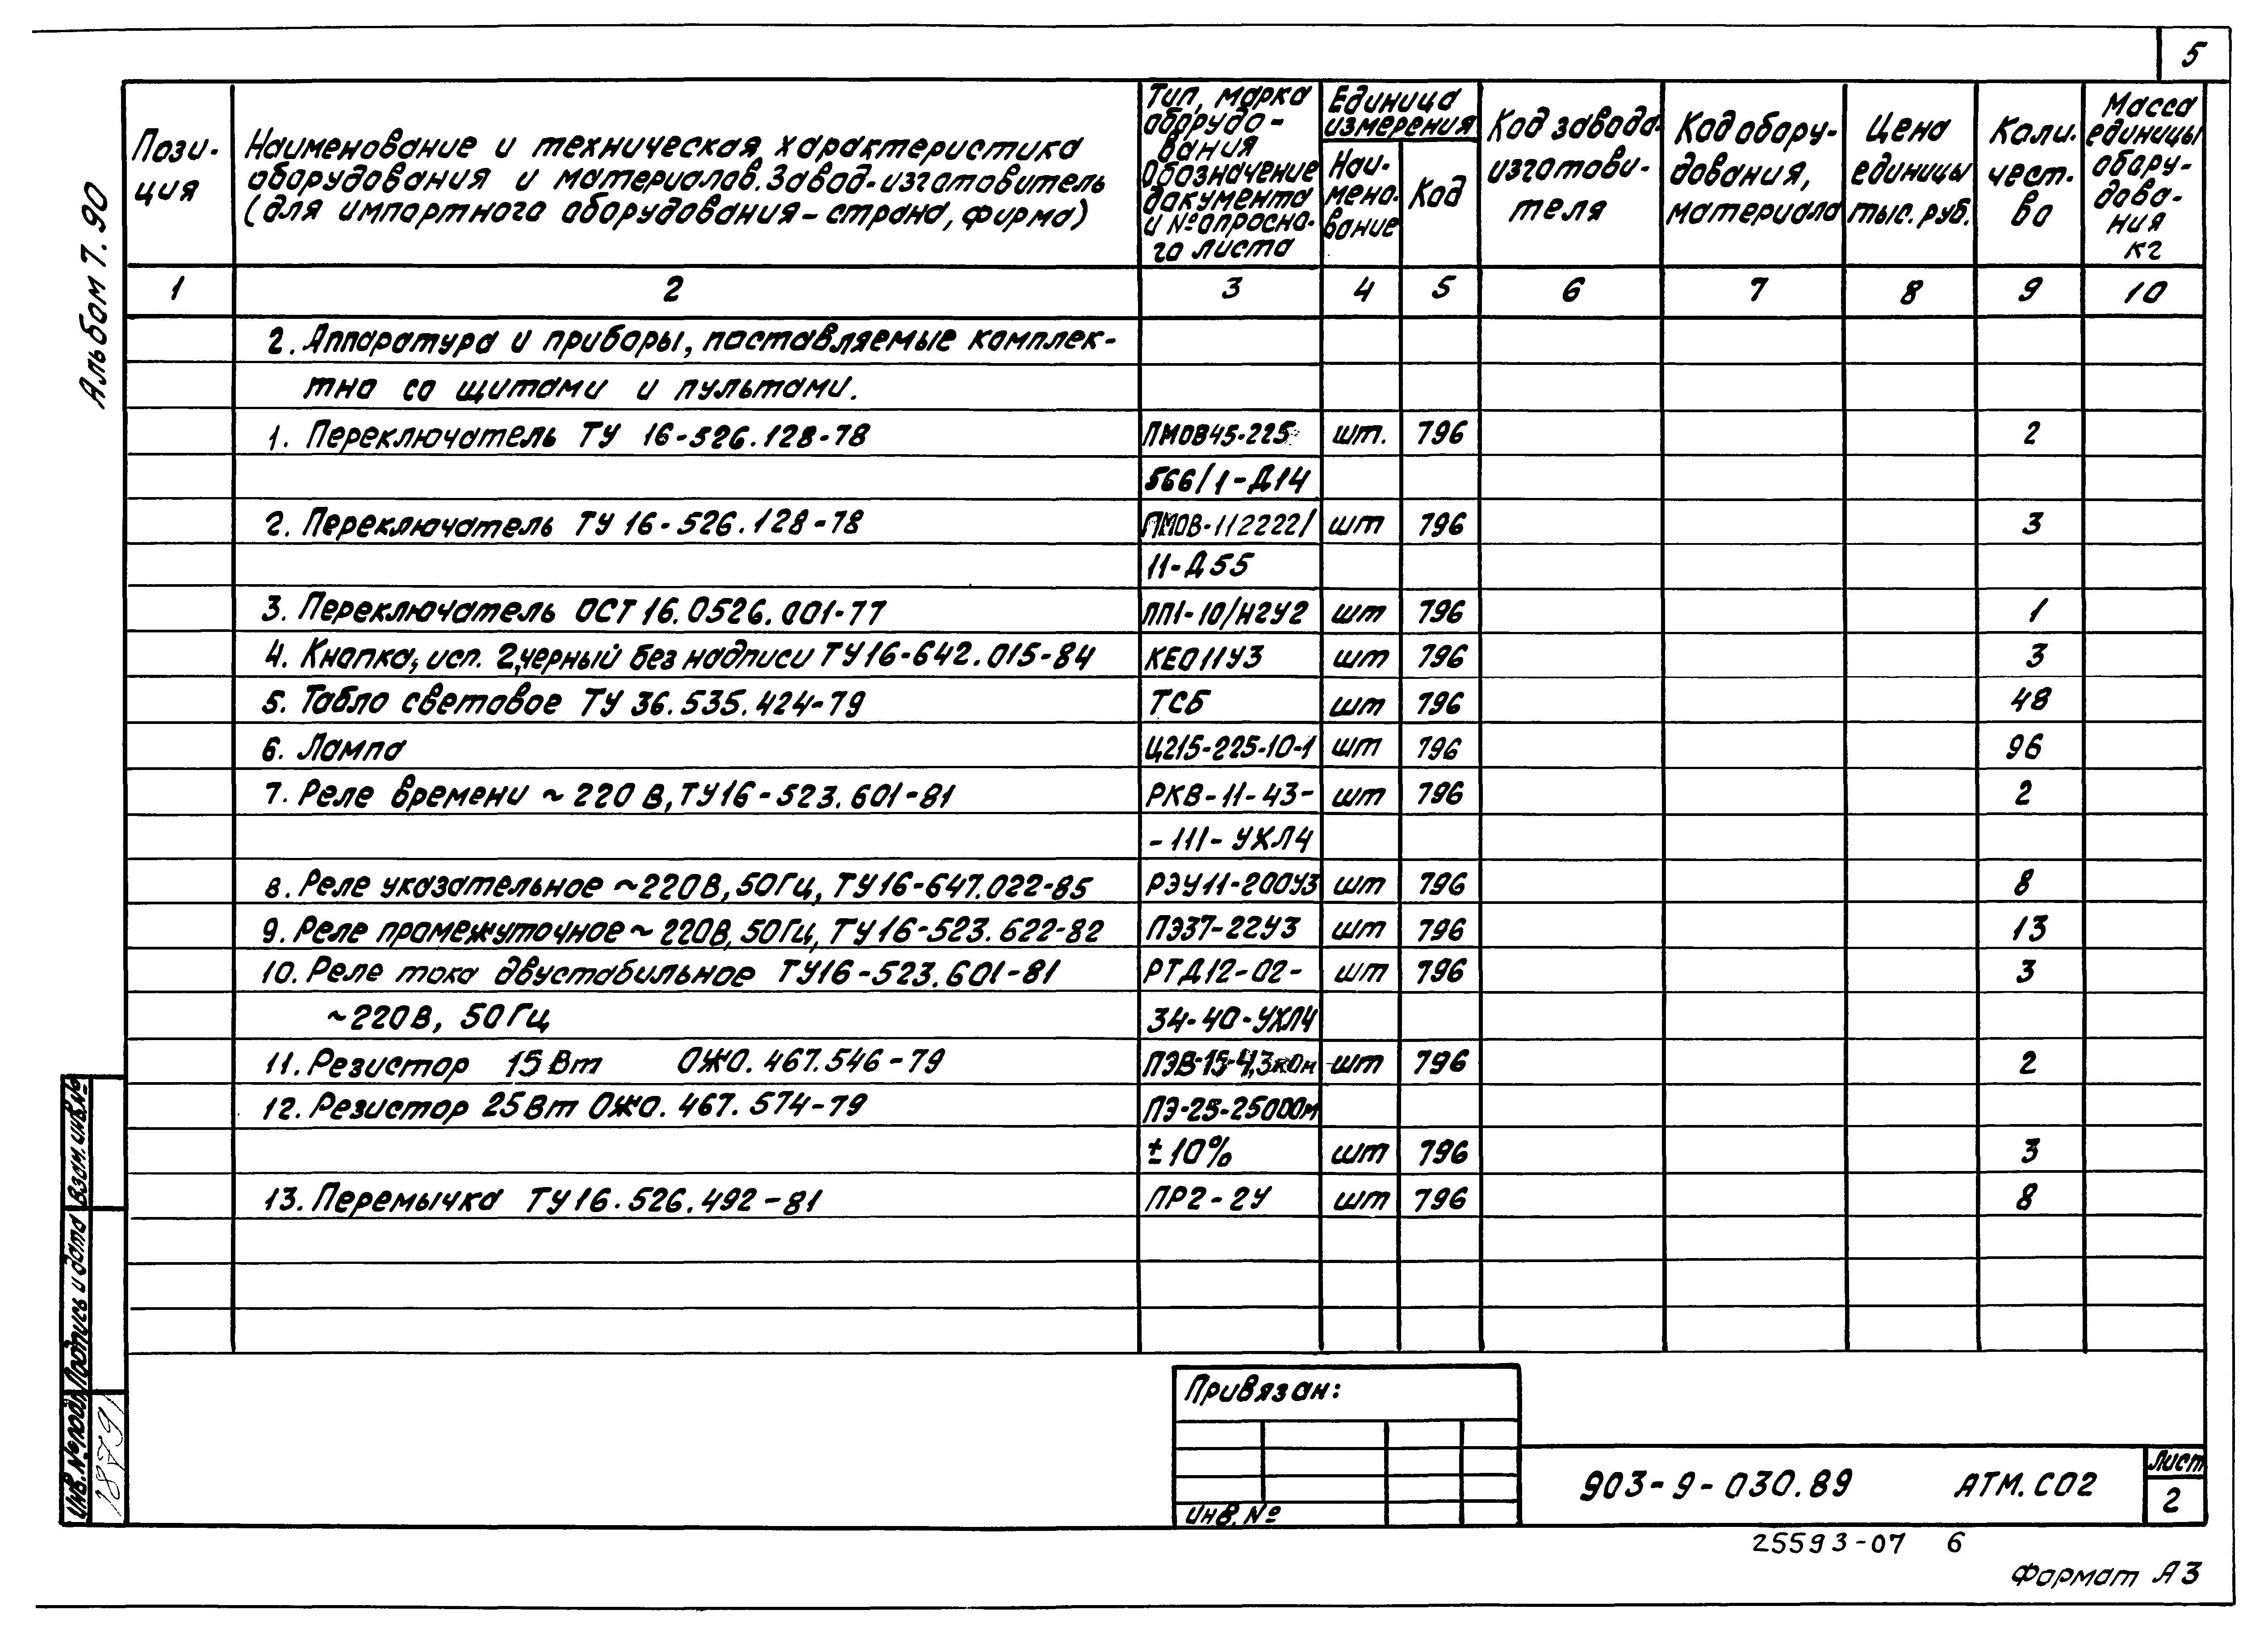 5
Альбом 7.90
Пози-
ция
Наименование и техническая характеристика
оборудования и материалов. Завод-изготовитель
(для импортного оборудования - страна, фирма)
Тип, марка
оборудо-
вания
Обозначение
документа
и № опросно-
го листа
Единица
измерения
Наи-
мено-
вание
Код
Код завода-
изготови-
теля
Код обору-
дования,
материала
Цена
единицы
тыс. руб.
Коли-
чест-
во
Масса
единицы
обору-
дова-
ния
кг
1 2 3 4 5 6 7 8 9 10
2. Аппаратура и приборы, поставляемые комплек-
тно со щитами и пультами.
1. Переключатель ТУ 16-526.128-78 ПМОВ45-225 шт. 796 2
566/1-Д14
2. Переключатель ТУ 16-526.128-78 ПМОВ-112222/ шт 796 3
11-Д55
3. Переключатель ОСТ 16.0526.001-77 ПП1-10/Н2У2 шт 796 1
4. Кнопка, исп. 2, черный без надписи ТУ16-642.015-84 КЕ011У3 шт 796 3
5. Табло световое ТУ 36.535.424-79 ТСБ шт 796 48
6. Лампа Ц215-225-10-1 шт 796 96
7. Реле времени ~ 220 В, ТУ16-523.601-81 РКВ-11-43- шт 796 2
-111-УХЛ4
8. Реле указательное ~220В, 50Гц, ТУ16-647.022-85 РЭУ11-200У3 шт 796 8
9. Реле промежуточное ~ 220В, 50Гц, ТУ16-523.622-82 ПЭ37-22У3 шт 796 13
10. Реле тока двустабильное ТУ16-523.601-81 РТД12-02- шт 796 3
~220В, 50Гц 34-40-УХЛ4
11. Резистор 15Вт ОЖО.467.546-79 ПЭВ-15-4,3кОм шт 796 2
12. Резистор 25Вт ОЖО.467.574-79 ПЭ-25-2500Ом
±10% шт 796 3
13. Перемычка ТУ16.526.492-81 ПР2-2У шт 796 8
Взам. инв. №
Подпись и дата
Инв. № подл.
18791
Привязан:
Инв. №
903-9-030.89 АТМ.СО2
Лист
2
25593-07 6
Формат А3